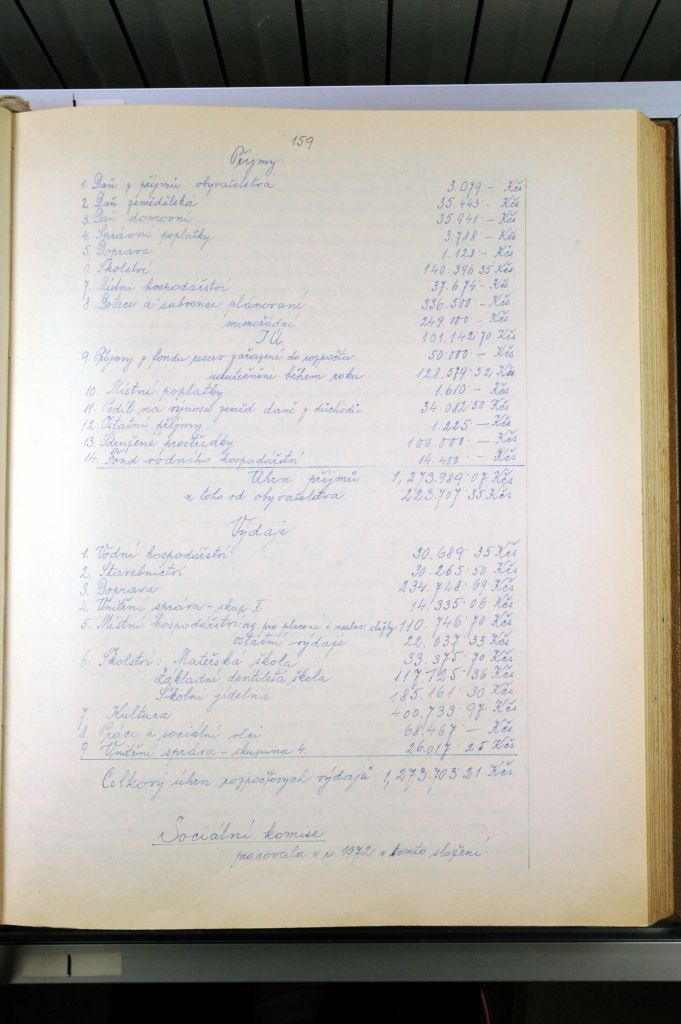 159
Příjmy
1. Daň z příjmů obyvatelstva 3.079 – Kčs
2. Daň zemědělská 35.443 – Kčs
3. Daň domovní 35.941 – Kčs
4. Správní poplatky 3.788 – Kčs
5. Doprava 1.128 – Kčs
6. Školství 140.396 35 Kčs
7. Místní hospodářství 37.674 – Kčs
8 Dotace a subvence plánované 336.500 – Kčs
mimořádné 249.000 – Kčs
101.142 70 Kčs
9. Příjmy z fondu reserv zařazení do rozpočtu 50.000 – Kčs
uskutečnění během roku 128.579 52 Kčs
10. Místní poplatky 1.610 – Kčs
11. Podíl na výnosu zeměd. daně z důchodů 34.082 50 Kčs
12. Ostatní příjmy 1.225 – Kčs
13. Sdružené prostředky 100.000 – Kčs
14. Fond vodního hospodářství 14.400 – Kčs
Úhrn příjmů 1,273.989 07 Kčs
z toho od obyvatelstva 223.707 35 Kčs
Výdaje
1. Vodní hospodářství 30.689 35 Kčs
2. Stavebnictví 30.265 50 Kčs
3. Doprava 234.748 69 Kčs
4. Vnitřní správa – skup. I. 14.335 06 Kčs
5. Místní hospodářství: ag. pro placení i neplac. služby 110.746 70 Kčs
ostatní výdaje 22.037 33 Kčs
6. Školství: Mateřská škola 33.375 70 Kčs
Základní devítiletá škola 117.125 36 Kčs
Školní jídelna 185.161 30 Kčs
7 Kultura 400.733 97 Kčs
8 Práce a sociální věci 68.467 – Kčs
9. Vnitřní správa – skupina 4. 26.017 25 Kčs
Celkový úhrn rozpočtových výdajů 1,273.703 21 Kčs.
Sociální komise
pracovala v r. 1972 v tomto složení: